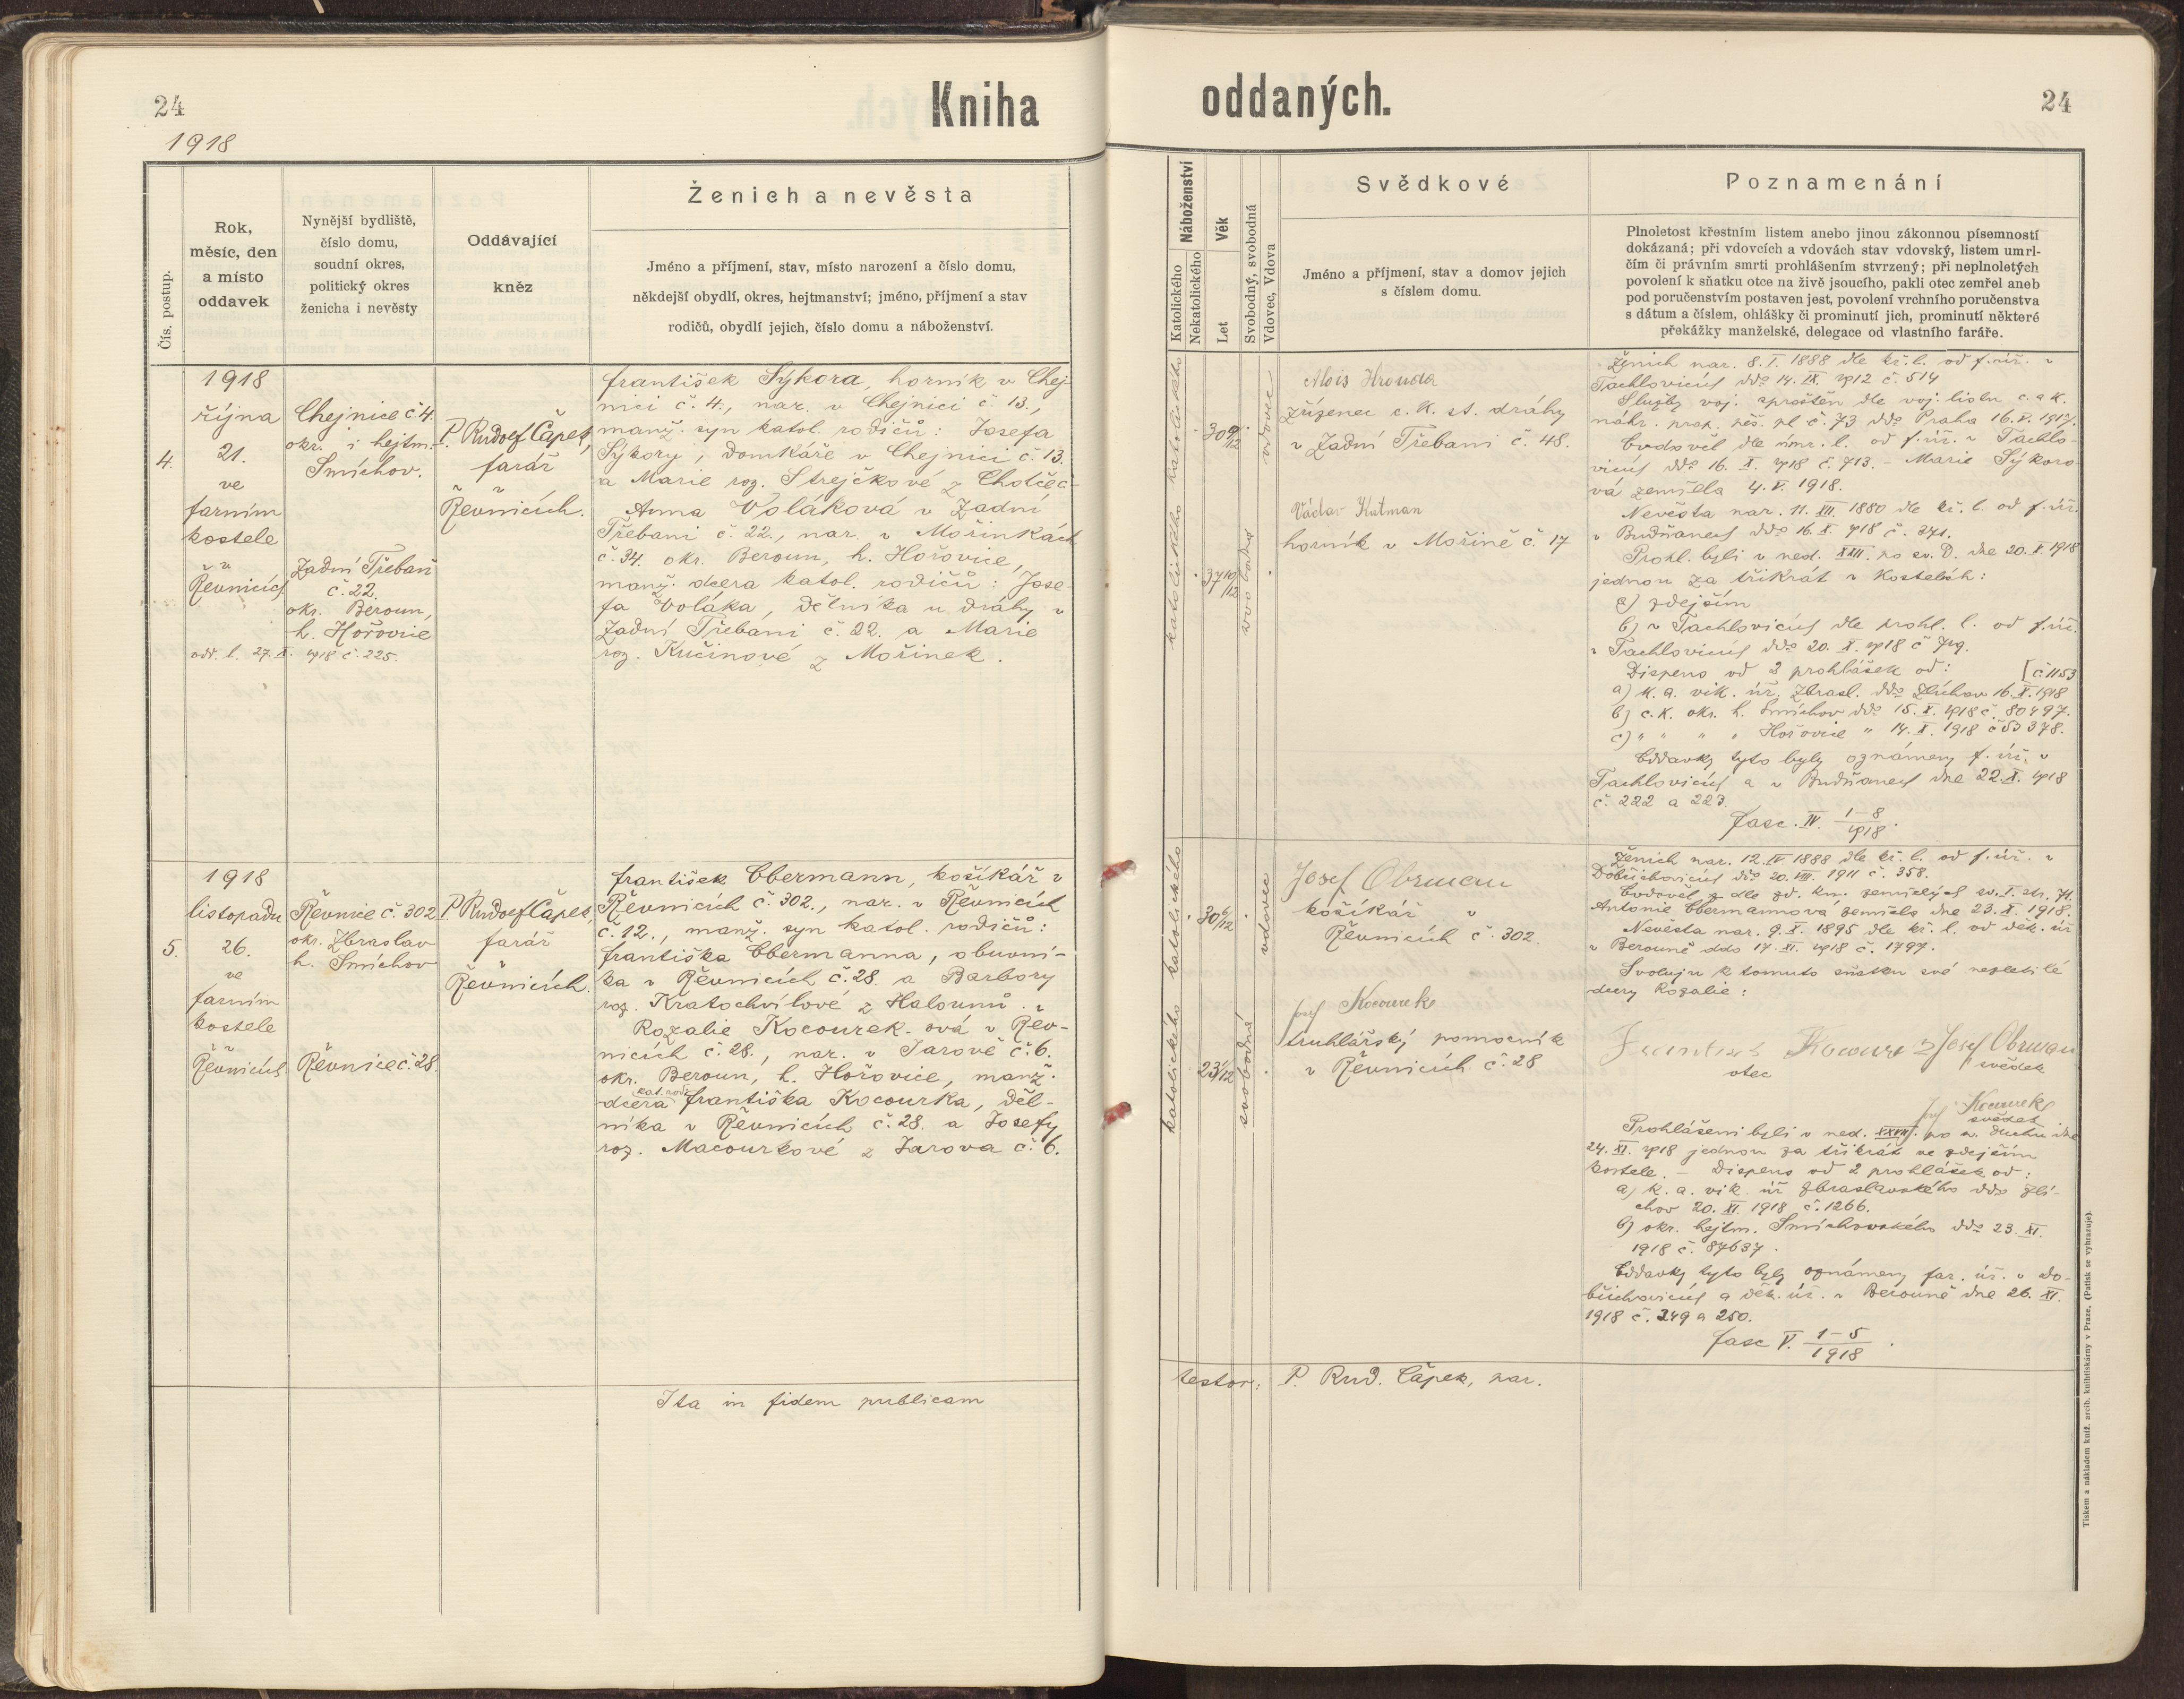 24
Kniha
1918
Čís. postup.
Rok,
měsíc, den
a místo
oddavek
Nynější bydliště,
číslo domu,
soudní okres,
politický okres
ženicha i nevěsty
Oddávající
kněz
Ženich a nevěsta
Jméno a příjmení, stav, místo narození a číslo domu,
někdejší obydlí, okres, hejtmanství; jméno, příjmení a stav
rodičů, obydlí jejich, číslo domu a náboženství.
4.
1918
října
21.
ve
farním
kostele
v
Řevnicích
odd. l. 27. X. 1918 č. 225.
Chejnice č. 4.
okr. i hejtm.
Smíchov.
Zadní Třebaň
č. 22.
okr. Beroun,
h. Hořovice
P. Rudolf Čapek,
farář
v
Řevnicích.
František Sýkora, horník v Chej-
nici č. 4., nar. v Chejnici č. 13.,
manž. syn katol. rodičů: Josefa
Sýkory, domkáře v Chejnici č. 13.
a Marie roz. Strejčkové z Chotče č
Anna Voláková v Zadní
Třebani č. 22., nar. v Mořinkách
č. 34. okr. Beroun, h. Hořovice,
manž. dcera katol. rodičů: Jose-
fa Voláka, dělníka u dráhy v
Zadní Třebani č. 22. a Marie
roz. Kučinové z Mořinek.
5.
1918
listopadu
26.
ve
farním
kostele
v
Řevnicích.
Řevnice č. 302
okr. Zbraslav
h. Smíchov
Řevnice č. 28.
P. Rudolf Čapek,
farář
v
Řevnicích.
František Obermann, košíkář v
Řevnicích č. 302., nar. v Řevnicích
č. 12., manž. syn katol. rodičů:
Františka Obermanna, obuvní-
ka v Řevnicích č. 28. a Barbory
roz. Kratochvílové z Halounů.
Rozalie Kocourek-ová v Řev-
nicích č. 28., nar. v Jarově č. 6.
okr. Beroun, h. Hořovice, manž.
kat. rod.
dcera Františka Kocourka, děl-
níka v Řevnicích č. 28. a Josefy
roz. Macourkové z Jarova č. 6.
Ita in fidem publicam
oddaných.
24
Náboženství
Katolického
Nekatolického
Věk
Let
Svobodný, svobodná
Vdovec, Vdova
Svědkové
Jméno a příjmení, stav a domov jejich
s číslem domu.
Poznamenání
Plnoletost křestním listem anebo jinou zákonnou písemností
dokázaná; při vdovcích a vdovách stav vdovský, listem umrl-
čím či právním smrti prohlášením stvrzený; při neplnoletých
povolení k sňatku otce na živě jsoucího, pakli otec zemřel aneb
pod poručenstvím postaven jest, povolení vrchního poručenstva
s dátum a číslem, ohlášky či prominutí jich, prominutí některé
překážky manželské, delegace od vlastního faráře.
katolického
30 9/12
vdovec
katolického
37 10/12
svobodná
Alois Hrouda
zřízenec c. k. st. dráhy
v Zadní Třebani č. 48.
Václav Kutman
horník v Mořině č. 17
Ženich nar. 8. I. 1888 dle kř. l. od f. úř. v
Tachlovicích ddo 14. IX. 1912 č. 514
Služby voj. sproštěn dle voj. listu c. a k.
náhr. prap. pěš. pl. č. 73 ddo Praha 16. V. 1917.
Ovdověl dle úmr. l. od f. úř. v Tachlo-
vicích ddo 16. X. 1918 č. 713. - Marie Sýkoro
vá zemřela 4. V. 1918.
Nevěsta nar. 11. XII. 1880 dle kř. l. od f. úř.
v Budňanech ddo 16. X. 1918 č. 371.
Prohl. byli v ned. XXII. po sv. D. dne 20. X. 1918
jednou za třikrát v kostelích:
a) zdejším
b) v Tachlovicích dle prohl. l. od f. úř.
v Tachlovicích ddo 20. X. 1918 č
Dispens od 2 prohlášek od: [č. 1153
a) k. a. vik. úř. Zbrasl. ddo Zlíchov 16. X. 1918
b) c. k. okr. h. Smíchov ddo 15. X. 1918 č. 80497.
c) " " " " Hořovice " 14. X. 1918 č 53378.
Oddavky tyto byly oznámeny f. úř. v
Tachlovicích a v Budňanech dne 22. X. 1918
č. 222 a 223.
Fasc. IV. 1-8/1918.
katolického
30 6/12
vdovec
katolického
23 1/12
svobodná
Josef Obrman
košíkář v
Řevnicích č. 302.
Josef Kocourek
truhlářský pomocník
v Řevnicích č. 28
Ženich nar. 12. IV 1888 dle kř. l. od f. úř. v
Dobřichovicích ddo 20. VIII. 1911 č. 358.
Ovdověl dle zd. kn. zemřelých sv. I. str. 71.
Antonie Obermannová zemřela dne 23. X. 1918.
Nevěsta nar. 9. X. 1895 dle kř. l. od děk. úř
v Berouně ddo 17. XI. 1918 č. 1797.
Svoluji k tomuto sňatku své nezletilé
dcery Rozalie:
František Kocourek
otec
Josef Obrman
svědek
Josef Kocourek
svědek
Prohlášeni byli v ned. XXVII. po sv. Duchu dne
24. XI. 1918 jednou za třikrát ve zdejším
kostele. - Dispens od 2 prohlášek od:
a) k. a. vik. úř Zbraslavského ddo Zlí-
chov 20. XI. 1918 č. 1266.
b) okr. hejtm. Smíchovského ddo 23. XI.
1918 č. 87637.
Oddavky tyto byly oznámeny far. úř. v Do-
břichovicích a děk. úř. v Berouně dne 26. XI.
1918 č. 249 a 250.
Fasc V. 1-5/1918.
testor: P. Rud. Čapek, par.
Tiskem a nákladem kníž. arcib. knihtiskárny v Praze. (Patisk se vyhrazuje).